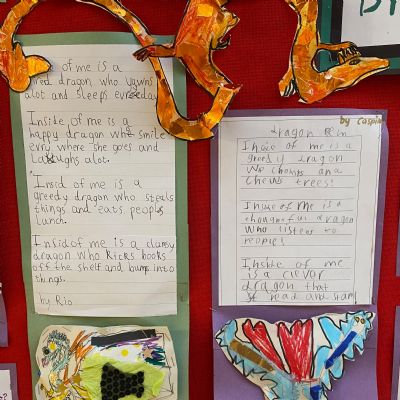 of me is a
red dragon who yawns
alot and sleeps evreeday
Inside of me is a
happy dragon who smile
evry where she goes and
Laughs alot.
Insid of me is a
greedy dragon who steals
things and eats peopls
lunch.
Insid of me is a clumsy
dragon who kicks books
off the shelf and bump into
things.
by Rio
by Caspian
dragon
Inside of me is a
greedy dragon
who chomps and
chews trees!
Inside of me is a
thoughtful dragon
who listens to
people!
Inside of me
is a clever
dragon that
read and